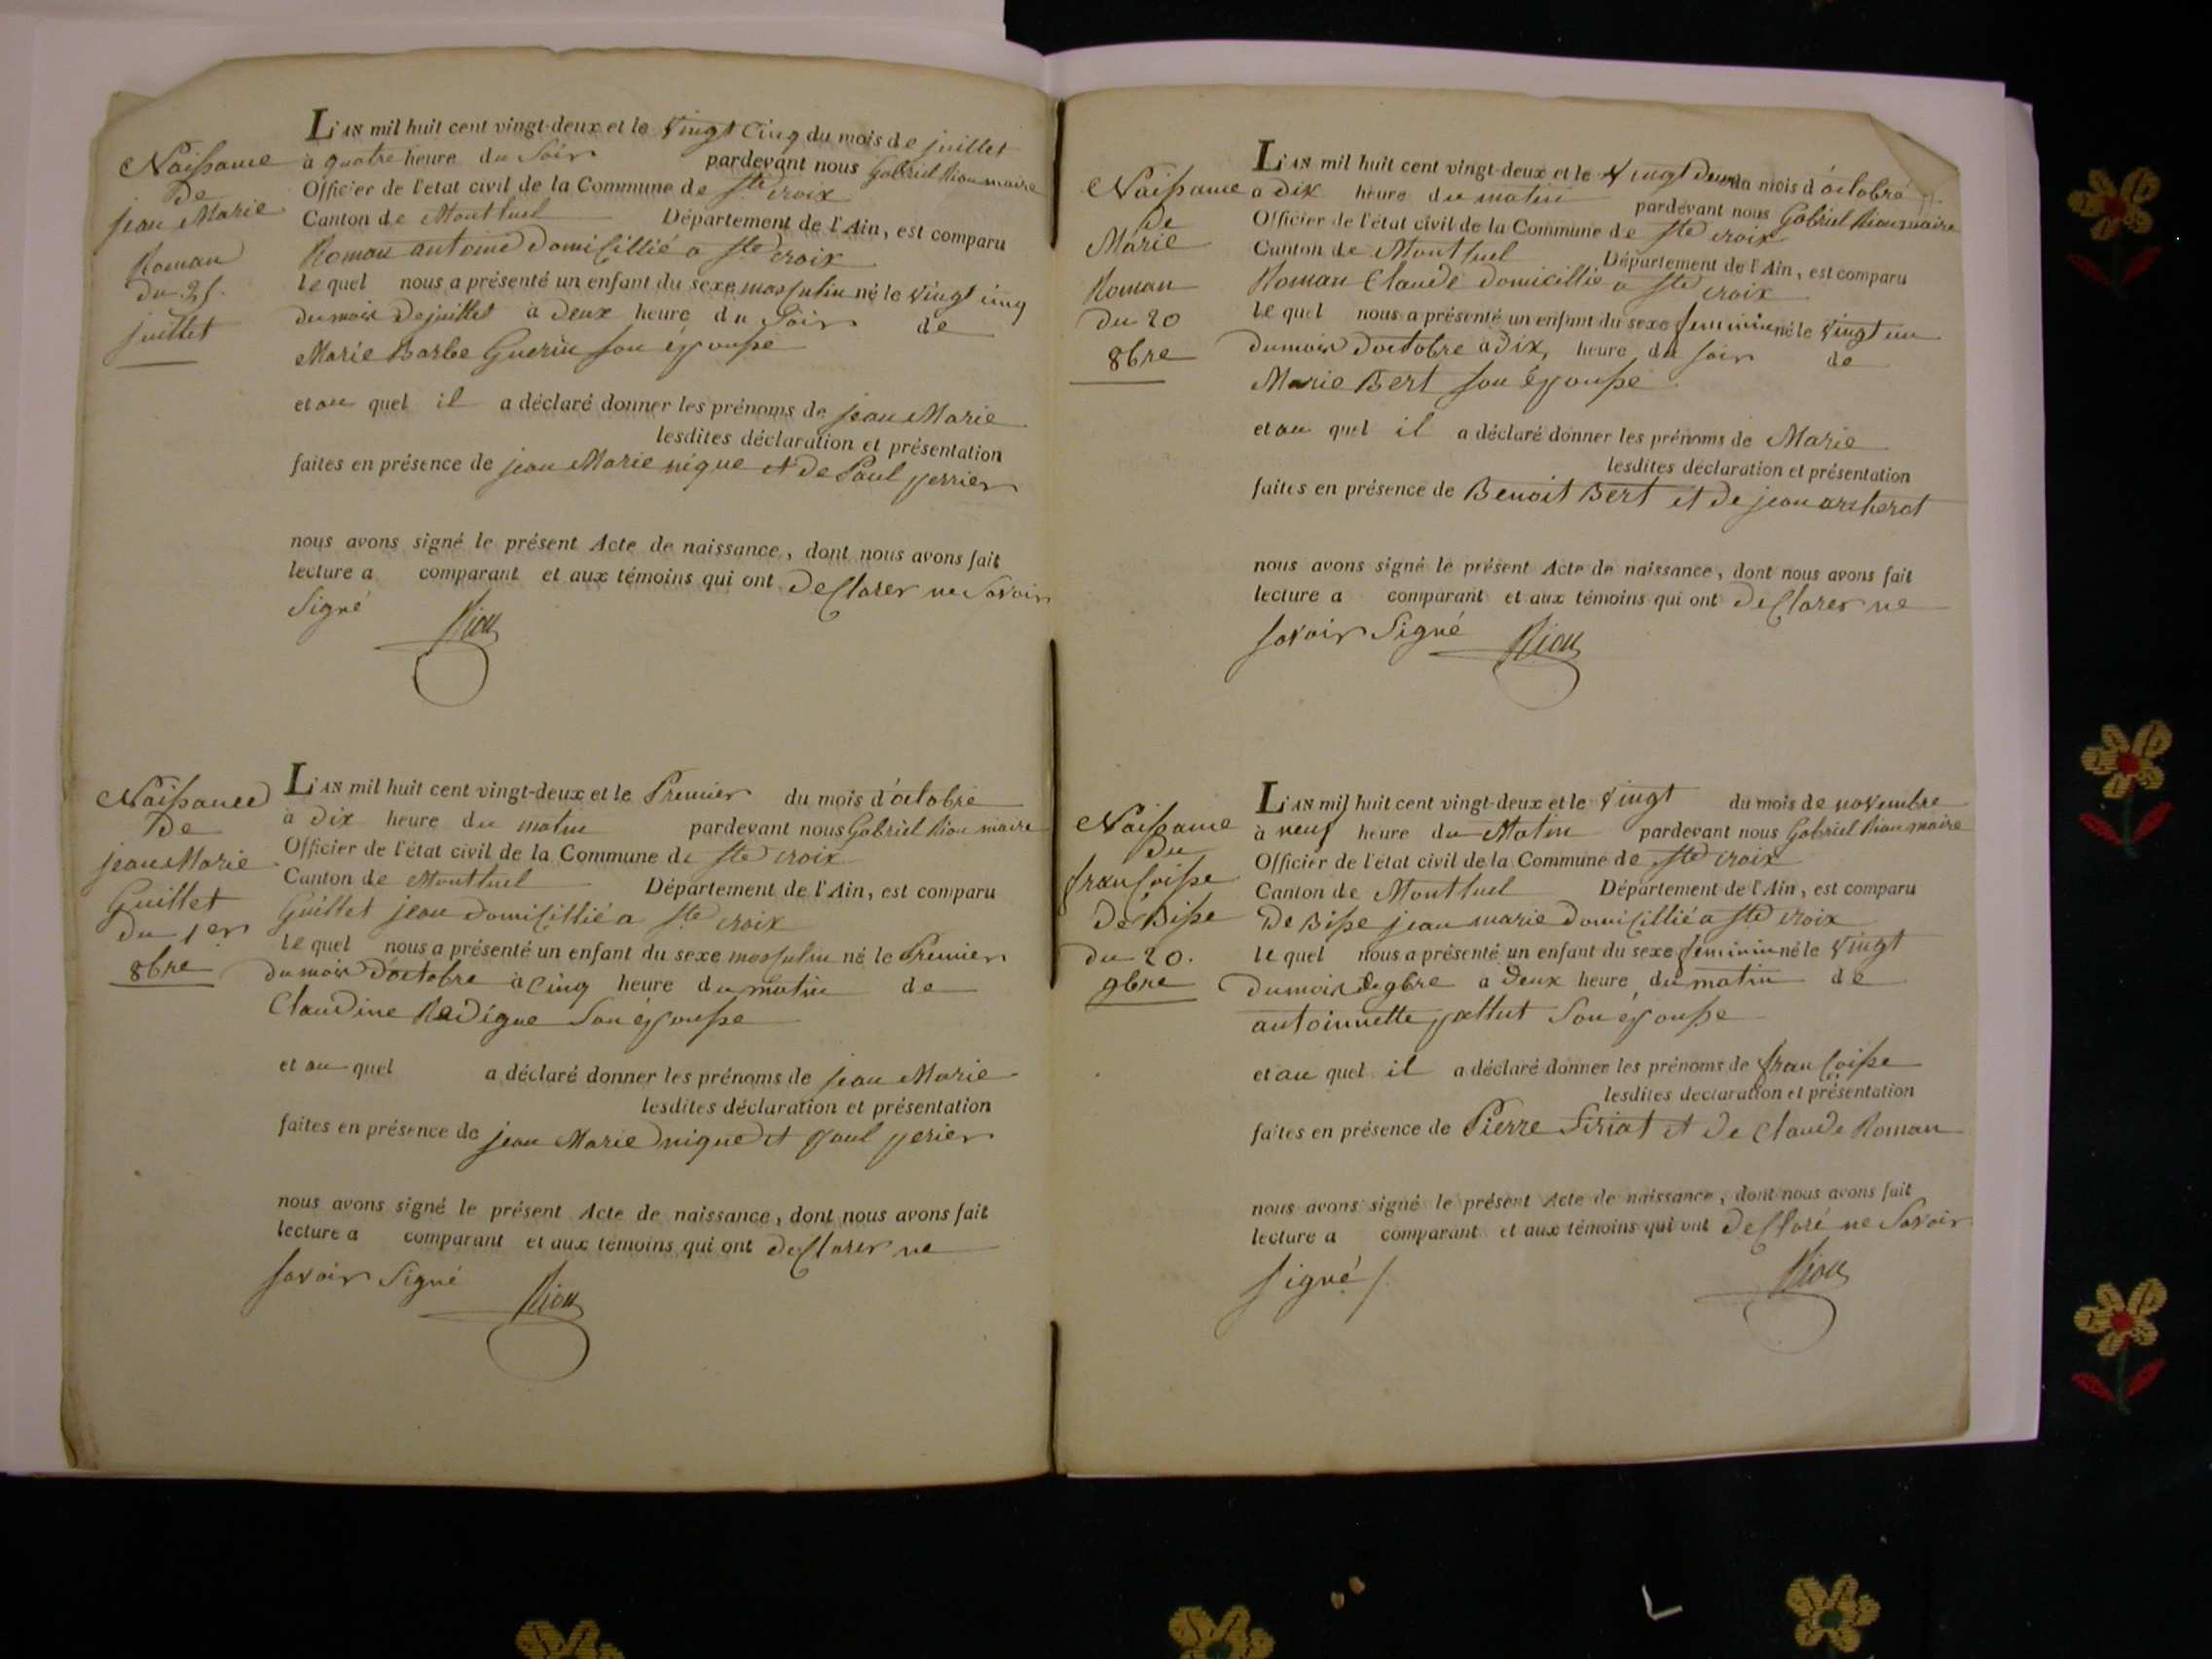 Naissance
de
jean Marie
Roman
du 25.
juillet
L'AN mil huit cent vingt-deux et le vingt Cinq du mois de juillet
à quatre heure du Soir pardevant nous Gabriel Riou maire
Officier de l'état civil de la Commune de Ste croix
Canton de Montluel Département de l'Ain, est comparu
Roman antoine domicillié a Ste croix
le quel nous a présenté un enfant du sexe masculin né le vingt cinq
du mois de juillet à deux heure du Soir de
Marie Barbe Guerin son épouse
et au quel il a déclaré donner les prénoms de jean Marie
lesdites déclaration et présentation
faites en présence de jean Marie nique et de Paul perrier
nous avons signé le présent Acte de naissance, dont nous avons fait
lecture a comparant et aux témoins qui ont declarer ne Savoir
Signé Riou
Naissance
de
jean Marie
Guillet
du 1er
8bre
L'AN mil huit cent vingt-deux et le Premier du mois d'octobre
à dix heure du matin pardevant nous Gabriel Riou maire
Officier de l'état civil de la Commune de Ste croix
Canton de Montluel Département de l'Ain, est comparu
Guillet jean domicillié a Ste croix
le quel nous a présenté un enfant du sexe masculin né le Premier
du mois d'octobre à cinq heure du matin de
Claudine Redigue Son épouse
et au quel a déclaré donner les prénoms de jean Marie
lesdites déclaration et présentation
faites en présence de jean Marie nique et paul perier
nous avons signé le présent Acte de naissance, dont nous avons fait
lecture a comparant et aux témoins qui ont declarer ne
savoir Signé Riou
Naissance
de
Marie
Roman
du 20
8bre
L'AN mil huit cent vingt-deux et le vingt deux du mois d'octobre
à dix heure du matin pardevant nous Gabriel Riou maire
Officier de l'état civil de la Commune de Ste croix
Canton de Montluel Département de l'Ain, est comparu
Roman Claude domicillié a Ste croix
le quel nous a présenté un enfant du sexe feminin né le vingt un
du mois d'octobre à dix heure du soir de
Marie Bert son épouse
et au quel il a déclaré donner les prénoms de Marie
lesdites déclaration et présentation
faites en présence de Benoit Bert et de jean archerat
nous avons signé le présent Acte de naissance, dont nous avons fait
lecture a comparant et aux témoins qui ont declarer ne
savoir Signé Riou
Naissance
du
francoise
de Bisse
du 20.
9bre
L'AN mil huit cent vingt-deux et le vingt du mois de novembre
à neuf heure du Matin pardevant nous Gabriel Riou maire
Officier de l'état civil de la Commune de Ste croix
Canton de Montluel Département de l'Ain, est comparu
De Bisse jean marie domicillié a Ste croix
le quel nous a présenté un enfant du sexe feminin né le vingt
du mois de 9bre a deux heure du matin de
antoinnette pattut Son épouse
et au quel il a déclaré donner les prénoms de francoise
lesdites déclaration et présentation
faites en présence de Pierre Siriat et de Claude Roman
nous avons signé le présent Acte de naissance, dont nous avons fait
lecture a comparant et aux témoins qui ont declaré ne Savoir
signé /. Riou